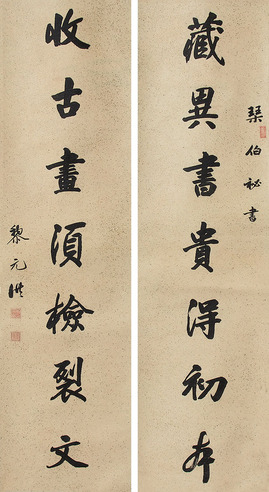 藏異書貴得初本
琹伯祕書
收古畫須檢裂文
黎元洪